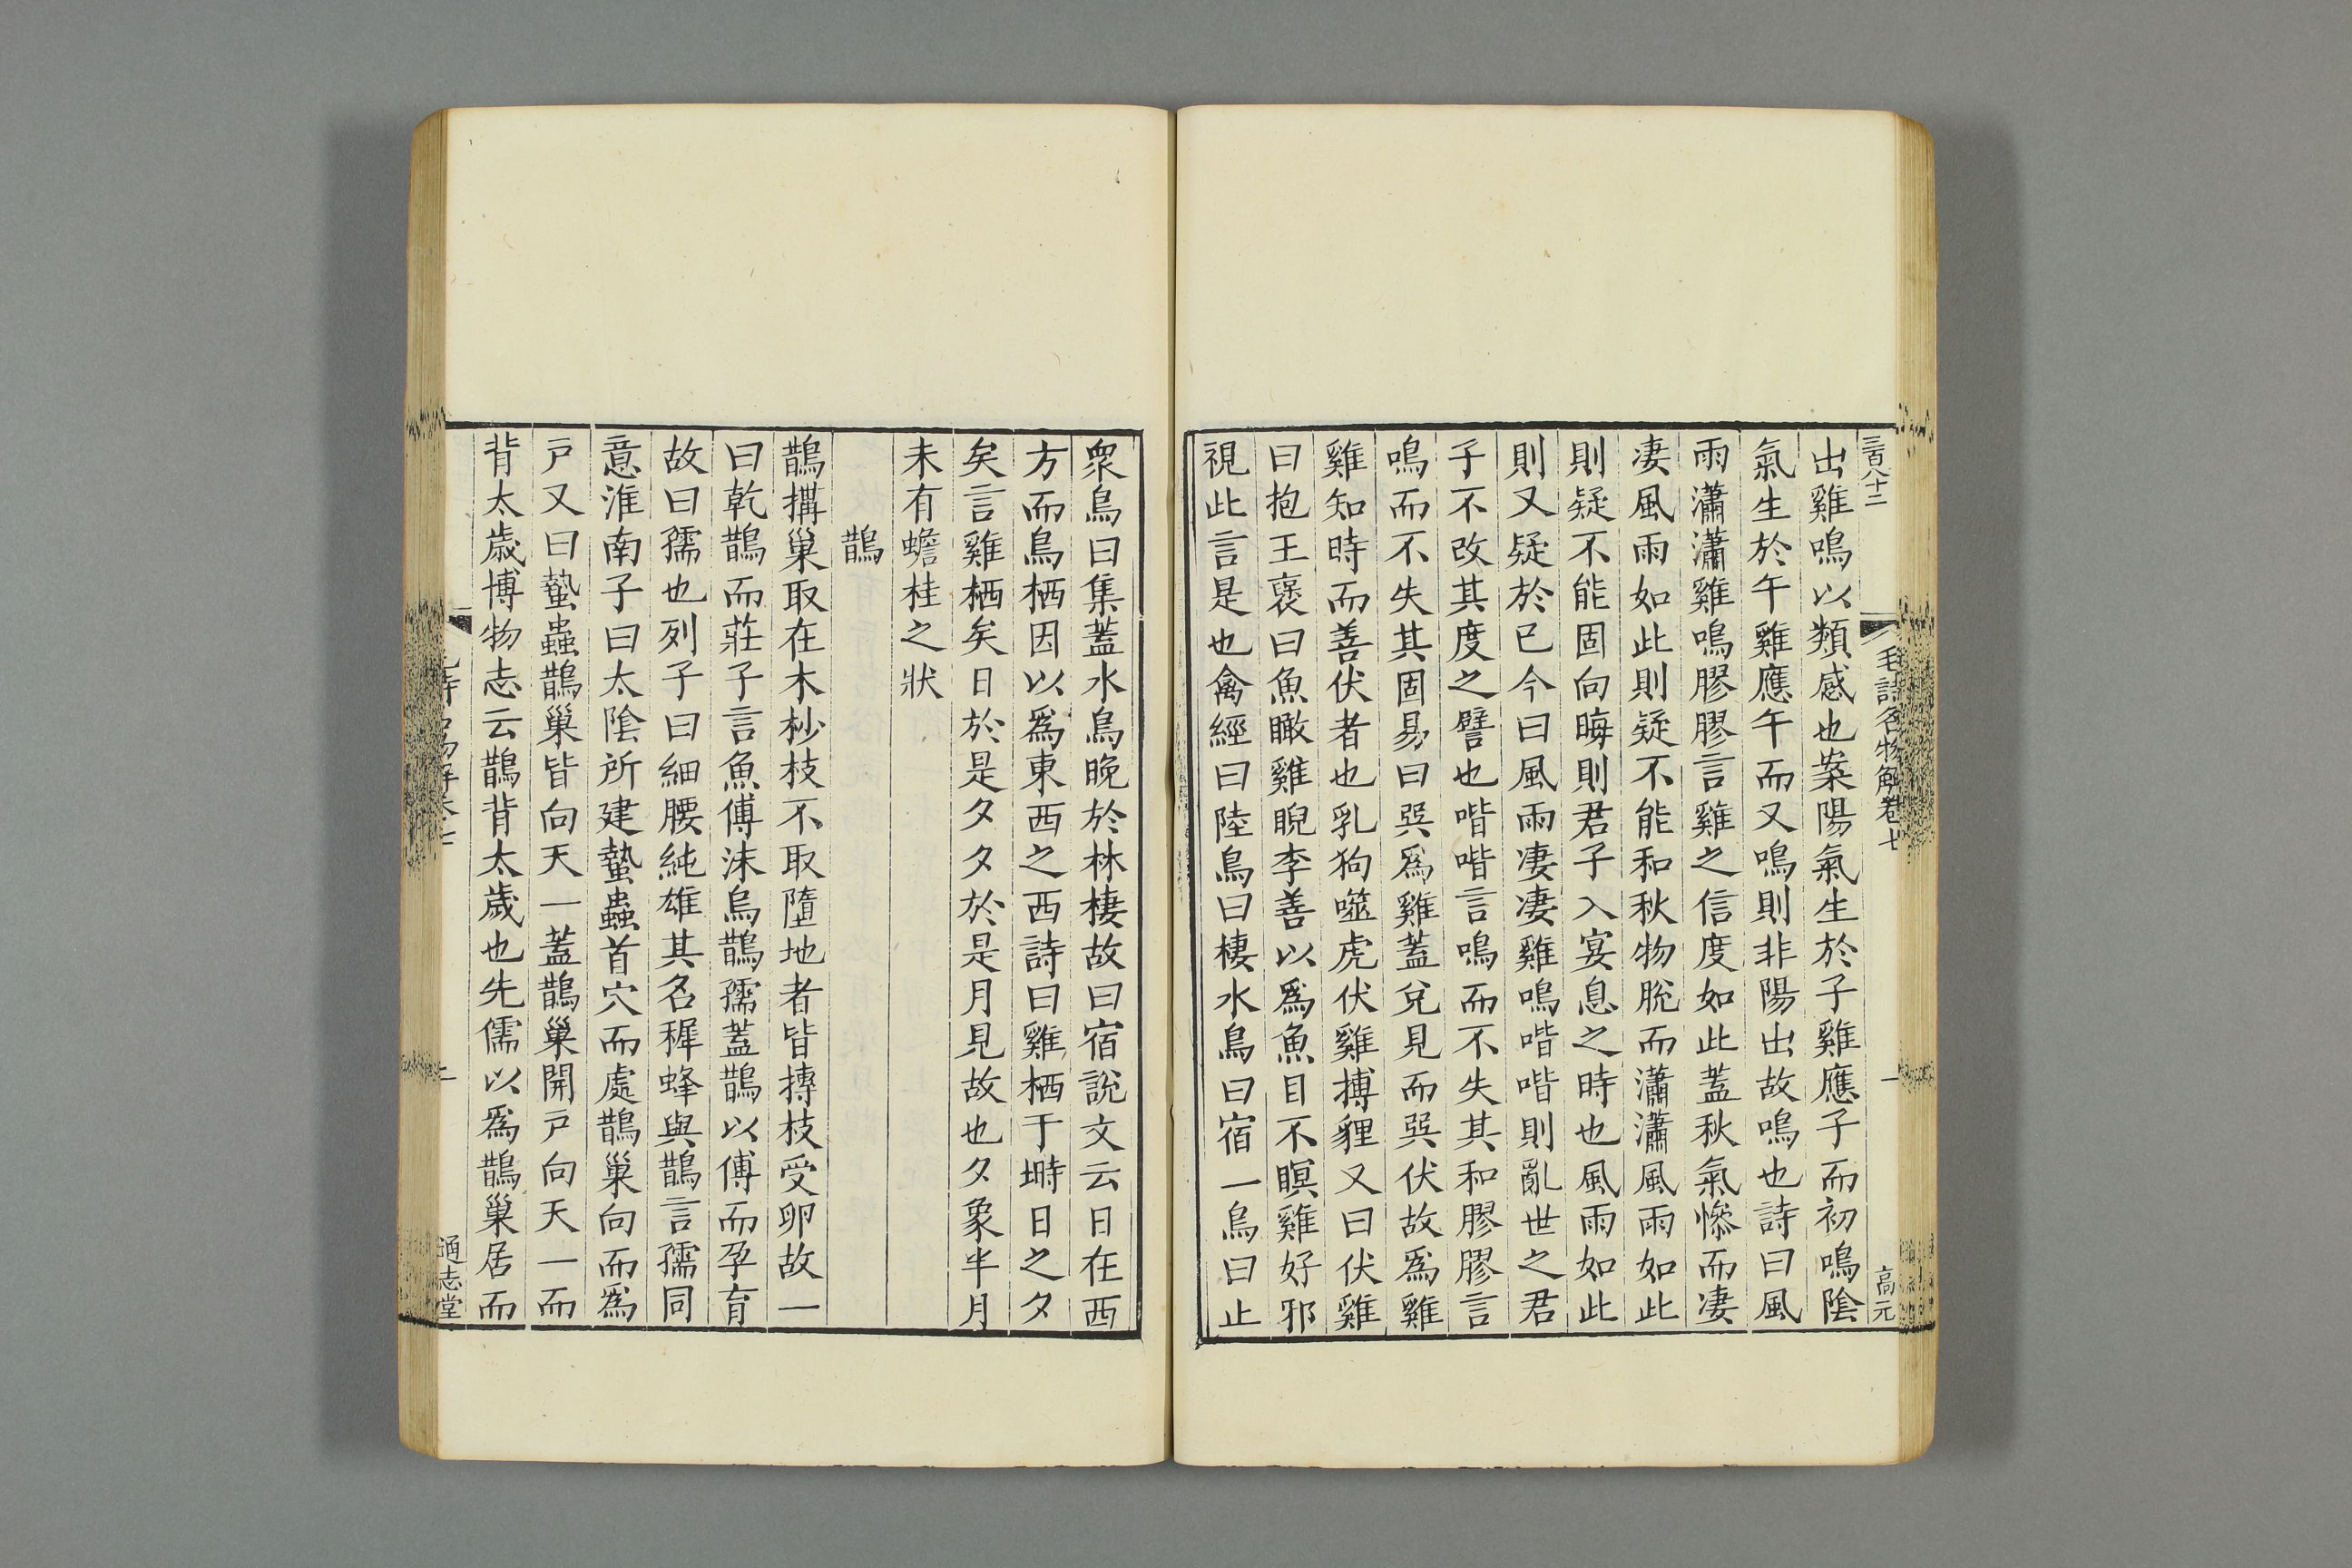 三百八十二
毛詩名物解卷七
一
高元
出雞鳴以類感也案陽氣生於子雞應子而初鳴陰
氣生於午雞應午而又鳴則非陽出故鳴也詩曰風
雨瀟瀟雞鳴膠膠言雞之信度如此蓋秋氣慘而淒
淒風雨如此則疑不能和秋物脫而瀟瀟風雨如此
則疑不能固向晦則君子入宴息之時也風雨如此
則又疑於已今曰風雨淒淒雞鳴喈喈則亂世之君
子不改其度之譬也喈喈言鳴而不失其和膠膠言
鳴而不失其固易曰巽爲雞蓋兌見而巽伏故爲雞
雞知時而善伏者也乳狗噬虎伏雞搏貍又曰伏雞
曰抱王褒曰魚瞰雞睨李善以爲魚目不瞑雞好邪
視此言是也禽經曰陸鳥曰棲水鳥曰宿一鳥曰止
眾鳥曰集蓋水鳥晚於林棲故曰宿說文云日在西
方而鳥栖因以爲東西之西詩曰雞栖于塒日之夕
矣言雞栖矣日於是夕夕於是月見故也夕象半月
未有蟾桂之狀
鵲
鵲搆巢取在木杪枝不取墮地者皆摶枝受卵故一
曰乾鵲而莊子言魚傅沫烏鵲孺蓋鵲以傅而孕育
故曰孺也列子曰細腰純雄其名稺蜂與鵲言孺同
意淮南子曰太陰所建蟄蟲首穴而處鵲巢向而爲
戸又曰蟄蟲鵲巢皆向天一蓋鵲巢開戸向天一而
背太歳博物志云鵲背太歲也先儒以爲鵲巢居而
通志堂